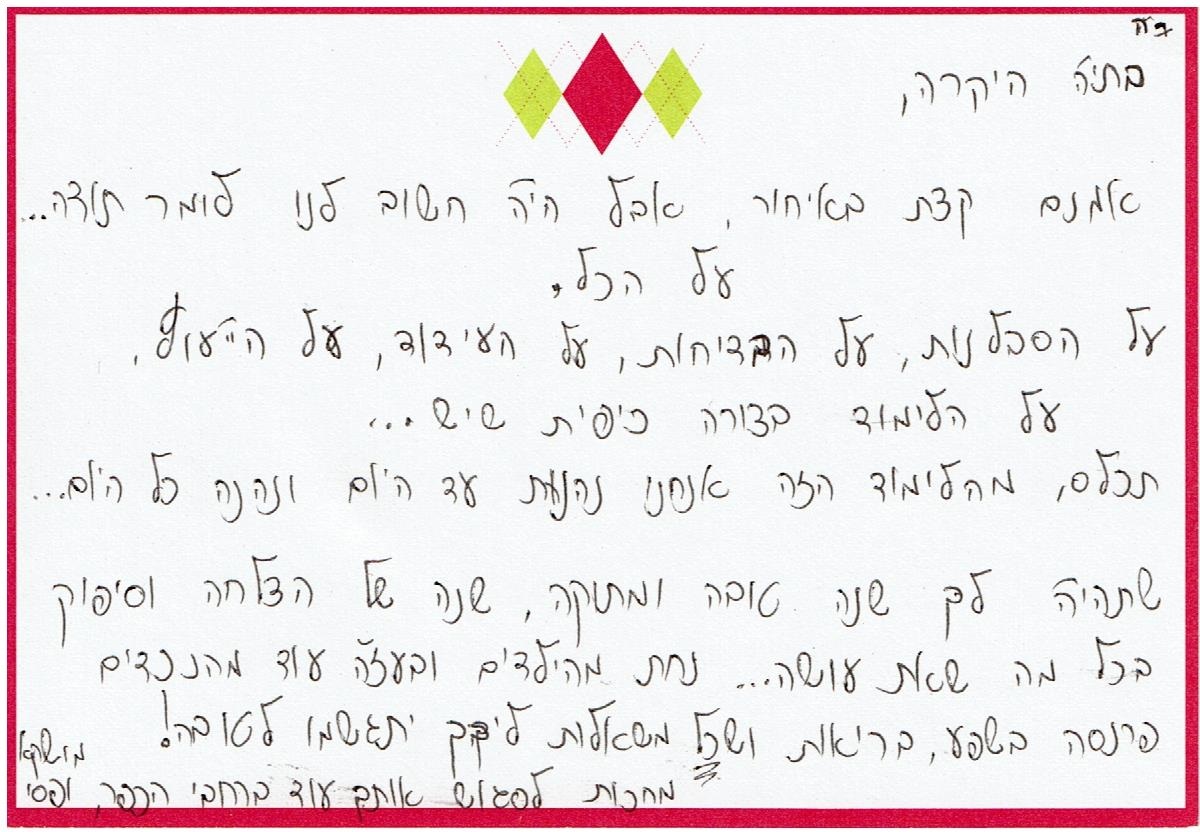 ב"ה
בתיה היקרה,
אמנם קצת באיחור, אבל היה חשוב לנו לומר תודה...
על הכל.
על הסבלנות, על הבדיחות, על העידוד, על הייעוץ,
על הלימוד בצורה כיפית שיש...
תכלס, מהלימוד הזה אנחנו נהנות עד היום ונהנה כל היום...
שתהיה לך שנה טובה ומתוקה, שנה של הצלחה וסיפוק
בכל מה שאת עושה... נחת מהילדים ובעזה עוד מהנכדים
פרנסה בשפע, בריאות ושכל משאלות ליבך יתגשמו לטובה!
מחכות לפגוש אותך עוד ברחבי הכפר, ופסי
מושקא